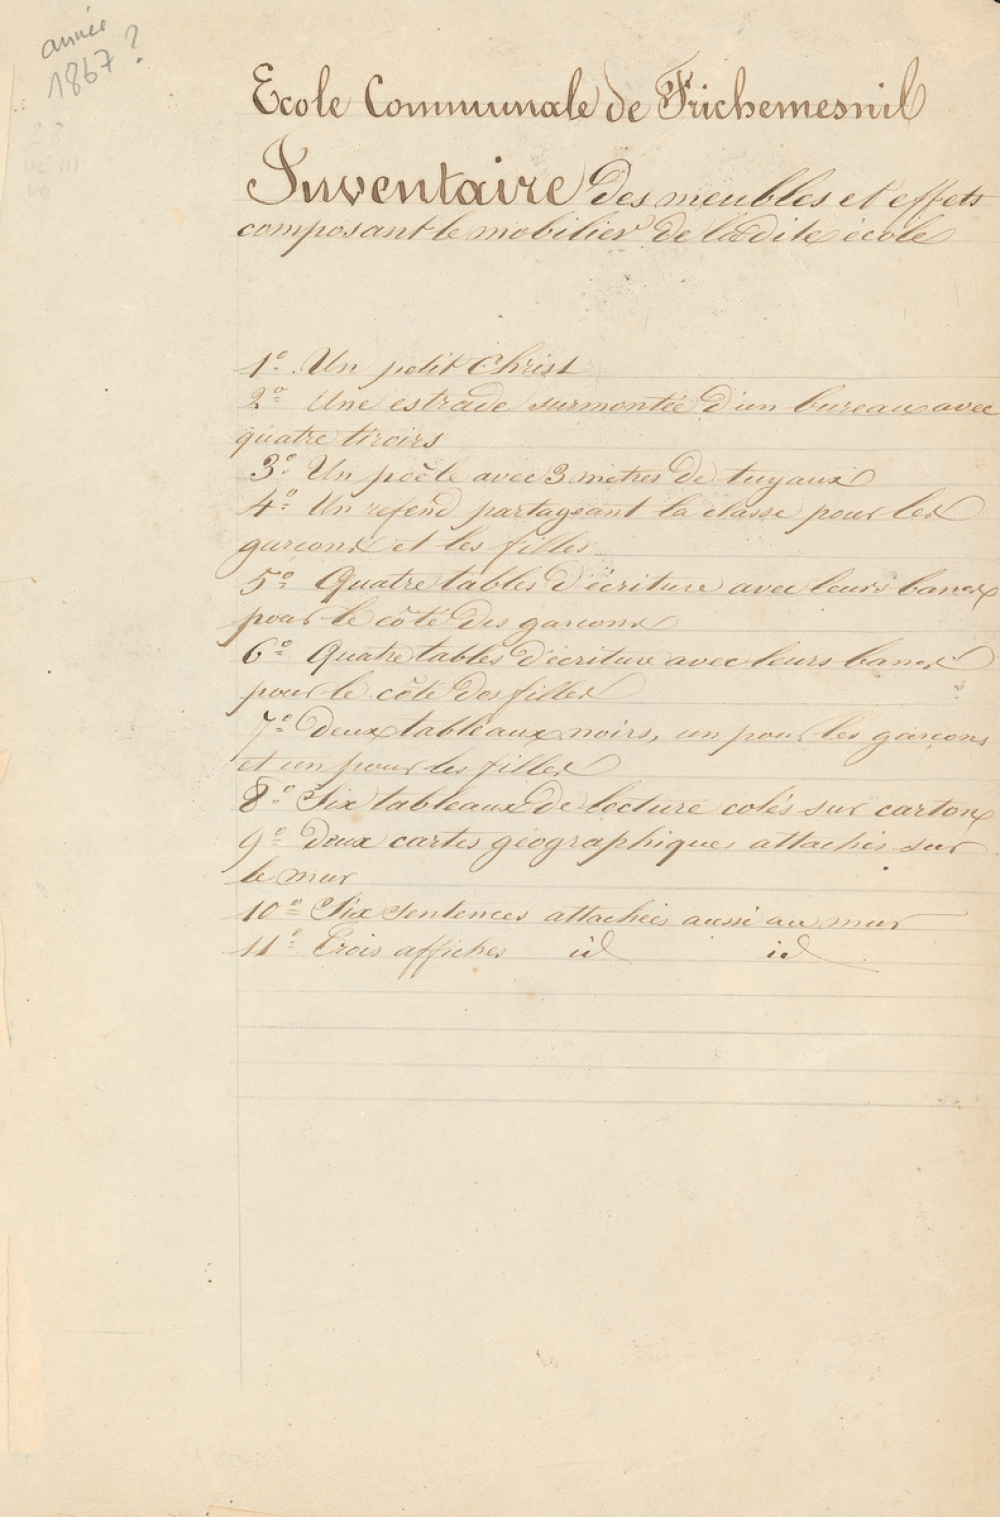 année
1867 ?
Ecole Communale de Frichemesnil
Inventaire des meubles et effets
composant le mobilier de la dite école
1º. Un petit Christ
2º Une estrade surmontée d'un bureau avec
quatre tiroirs
3º. Un poële avec 3 mètres de tuyaux
4º Un refend partageant la classe pour les
garçons et les filles
5º Quatre tables d'écriture avec leurs bancs
pour le côté des garçons
6º Quatre tables d'écriture avec leurs bancs
pour le côté des filles
7º Deux tableaux noirs, un pour les garçons
et un pour les filles
8º Six tableaux de lecture colés sur carton
9º Deux cartes géographiques attachés sur
le mur
10º Six sentences attachées aussi au mur
11º Trois affiches id id